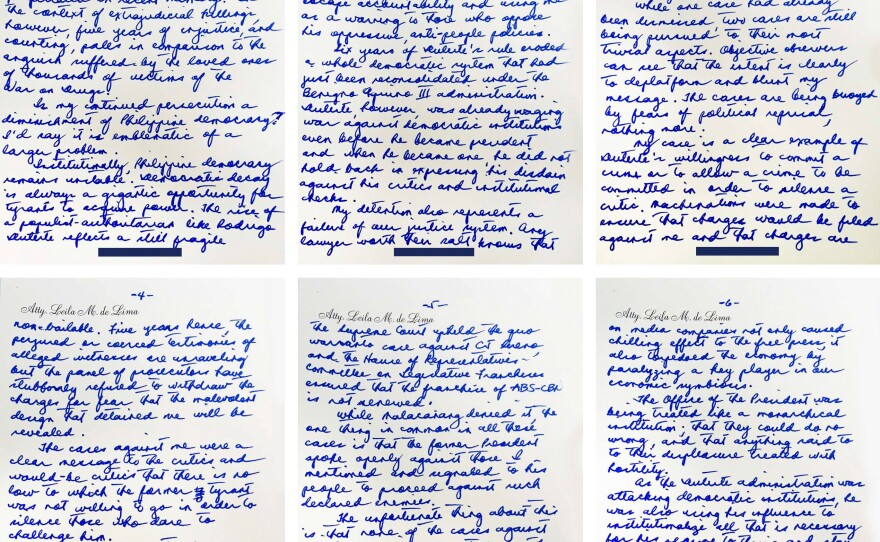 the context of extrajudicial killings.
however, five years of injustice, and
counting, pales in comparison to the
anguish suffered by the loved ones
of thousands of victims of the
War on Drugs.
Is my continued persecution a
diminishment of Philippine democracy?
I'd say it is emblematic of a
larger problem.
Institutionally, Philippine democracy
remain unstable. Democratic decay
is always a gigantic opportunity for
tyrants to acquire power. The rise of
a populist-authoritarian like Rodrigo
Duterte reflects a still fragile
escape accountability and using me
as a warning to those who oppose
his oppressive, anti-people policies.
Six years of Duterte's rule eroded
a whole democratic system that had
just been reconsolidated under the
Benigno Aquino III administration.
Duterte however was already waging
war against democratic institutions
even before he became president
and when he became one, he did not
hold back in expressing his disdain
against his critics and institutional
checks.
My detention also represents a
failure of our justice system. Any
lawyer worth their salt knows that
while one case had already
been dismissed two cases are still
being pursued to their most
trivial aspects. Objective observers
can see that the intent is clearly
to deplatform and blunt my
message. The cases are being buoyed
by fears of political reprisal,
nothing more.
My case is a clear example of
Duterte's willingness to commit a
crime or to allow a crime to be
committed in order to silence a
critic. Machinations were made to
ensure that charges would be filed
against me and that charges are
-4-
Atty. Leila M. de Lima
non-bailable. Five years hence, the
perjured or coerced testimonies of
alleged witnesses are unraveling
but the panel of prosecutors have
stubbornly refused to withdraw the
charges for fear that the malevolent
design that detained me will be
revealed.
The cases against me were a
clear message to the critics and
would-be critics that there is no
low to which the former tyrant
was not willing to go in order to
silence those who dare to
challenge him.
-5-
Atty. Leila M. de Lima
the Supreme Court upheld the quo
warranto case against CJ Sereno
and the House of Representatives'
Committee on Legislative Franchises
ensured that the franchise of ABS-CBN
is not renewed.
While Malacañang denied it the
one thing in common in all these
cases is that the former President
spoke openly against those I
mentioned and signaled to his
people to proceed against such
declared enemies.
The unfortunate thing about this
is that none of the cases against
-6-
Atty. Leila M. de Lima
on media companies not only caused
chilling effect to the free press, it
also torpedoed the economy by
paralyzing a key player in our
economic symbiosis.
The Office of the President was
being treated like a monarchical
institution; that they could do no
wrong, and that anything said to
to their displeasure treated with
hostility.
As the Duterte administration was
attacking democratic institutions, he
was also using his influence to
institutionalize all that is necessary